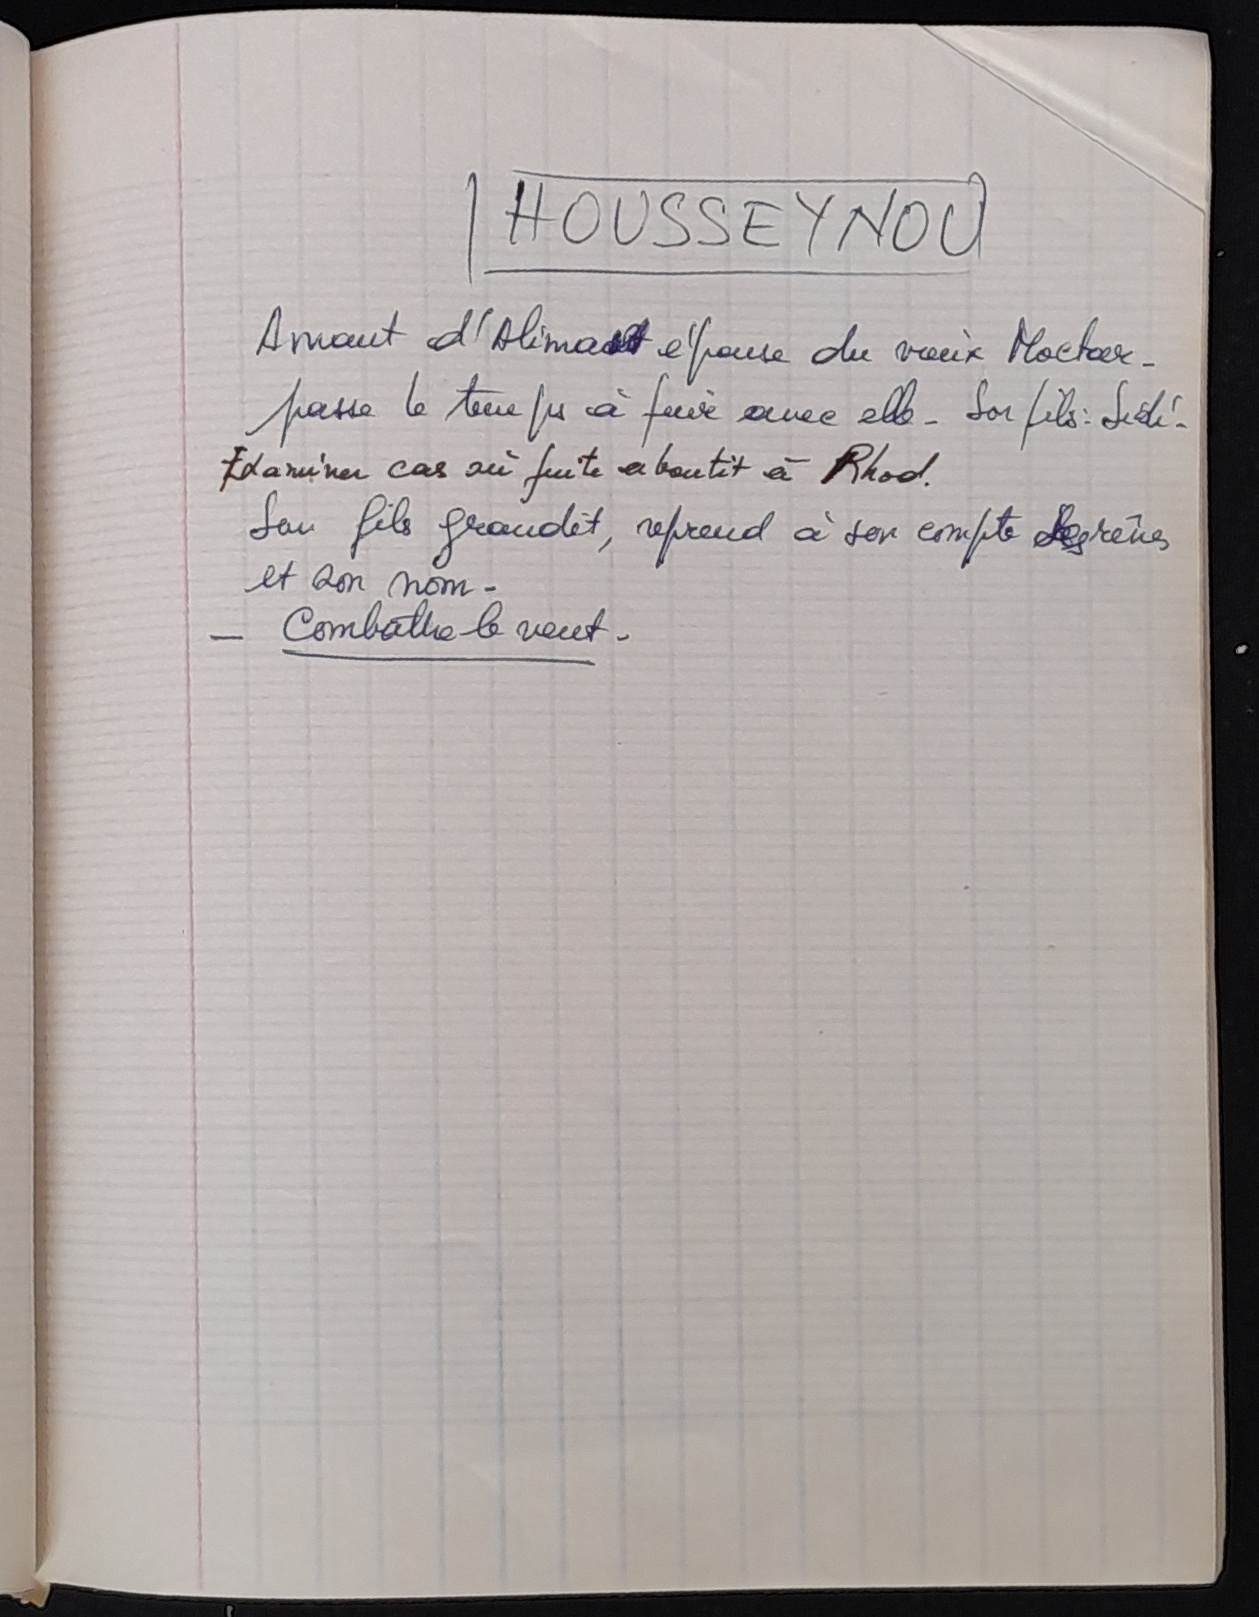 HOUSSEYNOU
Amant d'Alima épouse du vieux Moctar -
passe le temps à fuir avec elle - Son fils : Sidi -
Examiner cas où fuite aboutit à Rhod.
Son fils grandit, reprend à son compte rênes
et son nom -
- Combattre le vent -